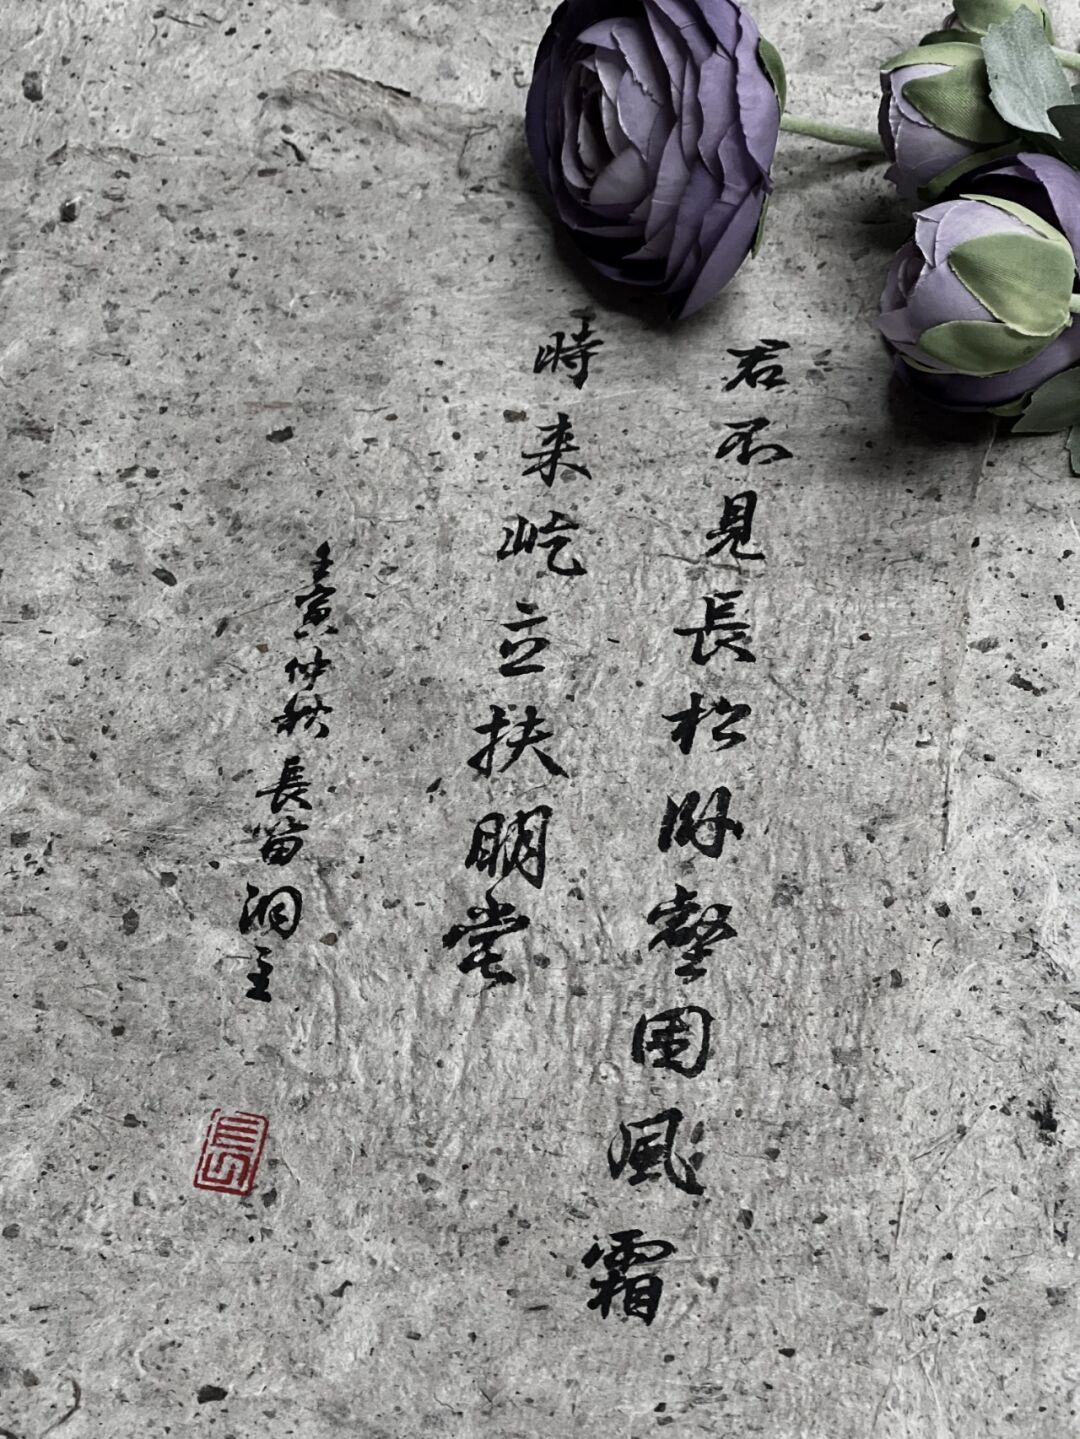 君不見長松卧壑困風霜
時來屹立扶明堂
壬寅仲秋長笛洞主